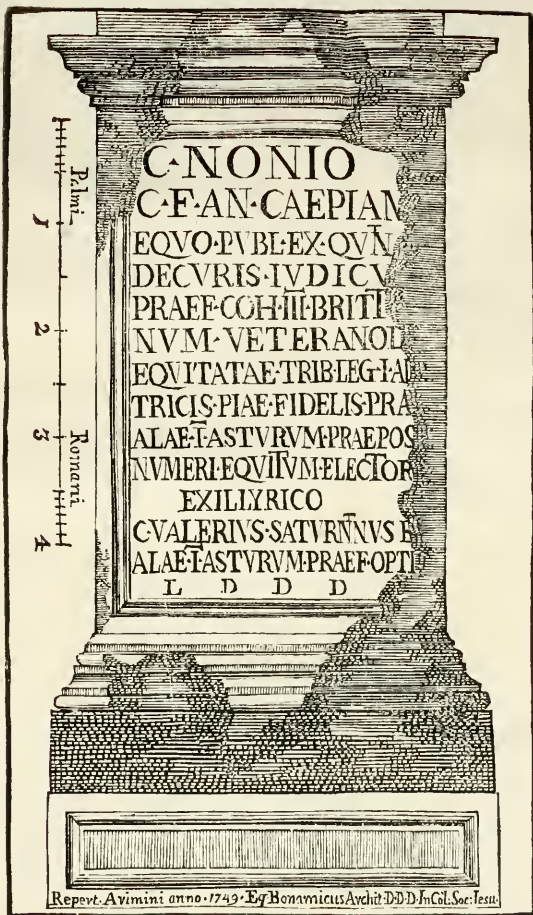 C·NONIO
C·F·AN·CAEPIAN
EQVO·PVBL·EX·QVIN
DECVRIS·IVDICV
PRAEF·COH·III·BRITT
NVM·VETERANO
EQVITATAE·TRIB·LEG·I·AD
TRICIS·PIAE·FIDELIS·PRA
ALAE·I·ASTVRVM·PRAEPOS
NVMERI·EQVITVM·ELECTOR
EXILLYRICO
C·VALERIVS·SATVRNINVS·E
ALAE·I·ASTVRVM·PRAEF·OPTI
L D D D
Palmi Romani
1
2
3
4
Repert·Arimini anno·1749·Eq·Bonamicus Archit·D·D·D·InCol:Soc:Iesu·